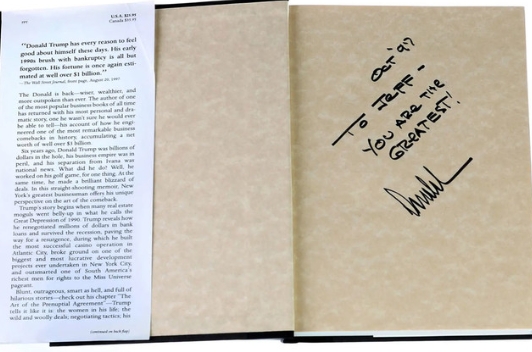 U.S.A.
Canada
"Donald Trump has every reason to feel
good about himself these days. His early
1990s brush with bankruptcy is all but
forgotten. His fortune is once again esti-
mated at well over $1 billion."
—The Wall Street Journal, front page, August 20, 1997
The Donald is back—wiser, wealthier, and
more outspoken than ever. The author of one
of the most popular business books of all time
has returned with his most personal and dra-
matic story, one he wasn't sure he would ever
be able to tell—his account of how he engi-
neered one of the most remarkable business
comebacks in history, accumulating a net
worth of well over $1 billion.
Six years ago, Donald Trump was billions of
dollars in the hole, his business empire was in
peril, and his separation from Ivana was
national news. What did he do? Well, he
worked on his golf game, for one thing. At the
same time, he made a brilliant blizzard of
deals. In this straight-shooting memoir, New
York's greatest businessman offers his unique
perspective on the art of the comeback.
Trump's story begins when many real estate
moguls were belly-up in what he calls the
Great Depression of 1990. Trump reveals how
he renegotiated millions of dollars in bank
loans and survived the recession, paving the
way for a resurgence, during which he built
the most successful casino operation in
Atlantic City, broke ground on one of the
biggest and most lucrative development
projects ever undertaken in New York City,
and outsmarted one of South America's
richest men for rights to the Miss Universe
pageant.
Blunt, outrageous, smart as hell, and full of
hilarious stories—check out his chapter "The
Art of the Prenuptial Agreement"—Trump
tells it like it is: the women in his life; the
wild and woolly deals; negotiating tactics; his
(continued on back flap)
OCT. '97
TO JEFF -
YOU ARE THE
GREATEST!